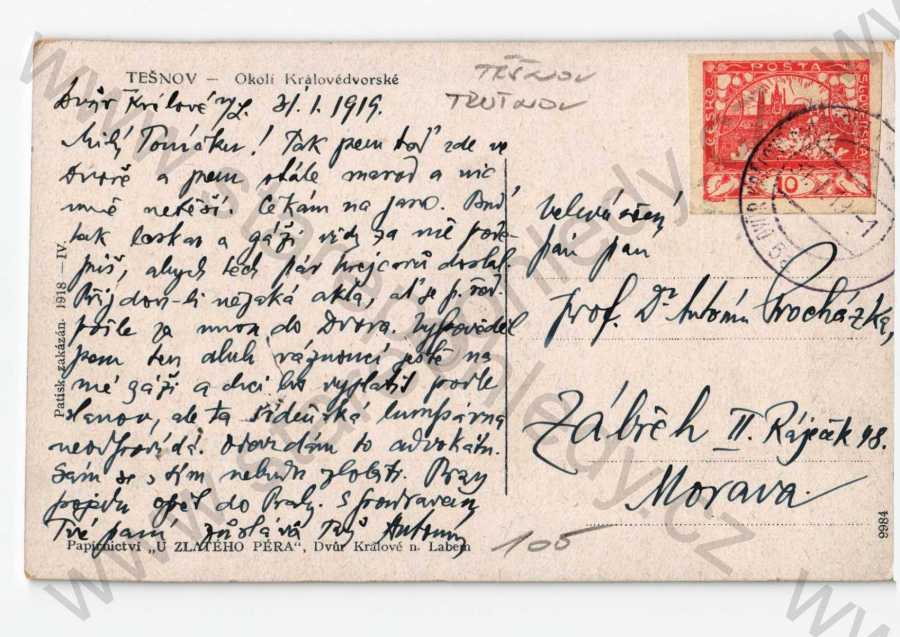 TEŠNOV — Okolí Královédvorské
TĚŠNOV
TRUTNOV
Dvůr Králové n/L. 31/1. 1919.
Milý Tomášku! Tak jsem toť zde ve
Dvoře a jsem stále marod a nic
mně netěší. Čekám na jaro. Buď
tak laskav a gáži vždy za mě pode-
piš, abych těch pár krejcarů dostal.
Přijdou-li nějaká akta, ať je p. řed.
pošle za mnou do Dvora. Vypověděl
jsem ten dluh váznoucí ještě na
mé gáži a chci ho vyplatit podle
stanov, ale ta vídeňská lumpárna
neodpovídá. Odevzdám to advokátu.
Sám se s tím nebudu zlobiti. Brzy
pojedu opět do Prahy. S pozdravem
Tvé paní zůstává Tvůj Antonín
Patisk zakázán. 1918 — IV.
Papírnictví „U ZLATÉHO PÉRA“, Dvůr Králové n. Labem
105
9984
ČESKO POŠTA SLOVENSKÁ
10
DVŮR KRÁLOVÉ
Velevážený
pán pan
prof. Dr Antonín Procházka,
Zábřeh II. Ráječek 48.
Morava.
www.starepohledy.cz